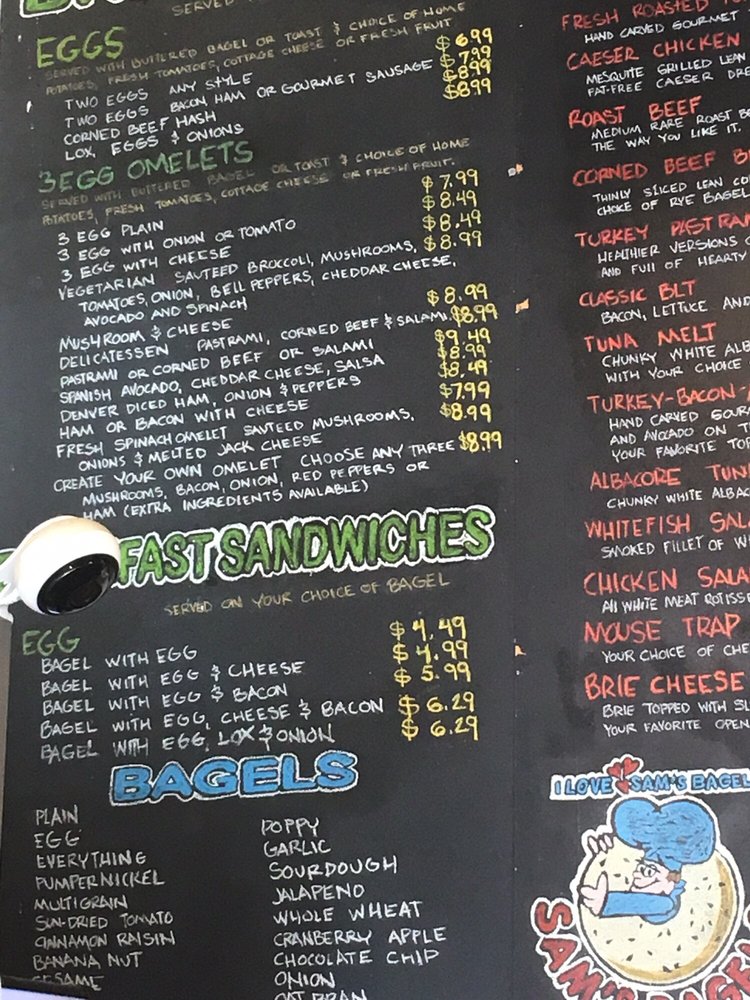 SERVED
EGGS
SERVED WITH BUTTERED BAGEL OR TOAST & CHOICE OF HOME
POTATOES, FRESH TOMATOES, COTTAGE CHEESE OR FRESH FRUIT
TWO EGGS ANY STYLE $6.99
TWO EGGS BACON, HAM OR GOURMET SAUSAGE $7.99
CORNED BEEF HASH $8.99
LOX, EGGS & ONIONS $8.99
3 EGG OMELETS
SERVED WITH BUTTERED BAGEL OR TOAST & CHOICE OF HOME
POTATOES, FRESH TOMATOES, COTTAGE CHEESE OR FRESH FRUIT.
3 EGG PLAIN $7.99
3 EGG WITH ONION OR TOMATO $8.49
3 EGG WITH CHEESE $8.49
VEGETARIAN SAUTEED BROCCOLI, MUSHROOMS, $8.99
TOMATOES, ONION, BELL PEPPERS, CHEDDAR CHEESE,
AVOCADO AND SPINACH
MUSHROOM & CHEESE $8.99
DELICATESSEN PASTRAMI, CORNED BEEF & SALAMI $8.99
PASTRAMI OR CORNED BEEF OR SALAMI $9.49
SPANISH AVOCADO, CHEDDAR CHEESE, SALSA $8.99
DENVER DICED HAM, ONION & PEPPERS $8.49
HAM OR BACON WITH CHEESE $7.99
FRESH SPINACH OMELET SAUTEED MUSHROOMS, $8.99
ONIONS & MELTED JACK CHEESE
CREATE YOUR OWN OMELET CHOOSE ANY THREE $8.99
MUSHROOMS, BACON, ONION, RED PEPPERS OR
HAM (EXTRA INGREDIENTS AVAILABLE)
FAST SANDWICHES
SERVED ON YOUR CHOICE OF BAGEL
EGG
BAGEL WITH EGG $4.49
BAGEL WITH EGG & CHEESE $4.99
BAGEL WITH EGG & BACON $5.99
BAGEL WITH EGG, CHEESE & BACON $6.29
BAGEL WITH EGG, LOX & ONION $6.29
BAGELS
PLAIN
EGG
EVERYTHING
PUMPERNICKEL
MULTIGRAIN
SUN-DRIED TOMATO
CINNAMON RAISIN
BANANA NUT
SESAME
POPPY
GARLIC
SOURDOUGH
JALAPENO
WHOLE WHEAT
CRANBERRY APPLE
CHOCOLATE CHIP
ONION
OAT BRAN
FRESH ROASTED
HAND CARVED GOURMET
CAESER CHICKEN
MESQUITE GRILLED LEAN
FAT-FREE CAESER
ROAST BEEF
MEDIUM RARE ROAST
THE WAY YOU LIKE IT.
CORNED BEEF
THINLY SLICED LEAN
CHOICE OF RYE BAGEL
TURKEY PASTRAMI
HEALTHIER VERSIONS
AND FULL OF HEARTY
CLASSIC BLT
BACON, LETTUCE AND
TUNA MELT
CHUNKY WHITE
WITH YOUR CHOICE
TURKEY-BACON-
HAND CARVED
AND AVOCADO ON
YOUR FAVORITE
ALBACORE TUNA
CHUNKY WHITE
WHITEFISH
SMOKED FILLET OF
CHICKEN
All WHITE MEAT
MOUSE TRAP
YOUR CHOICE OF
BRIE CHEESE
BRIE TOPPED WITH
YOUR FAVORITE OPEN
I LOVE SAM'S BAGEL
SAM'S